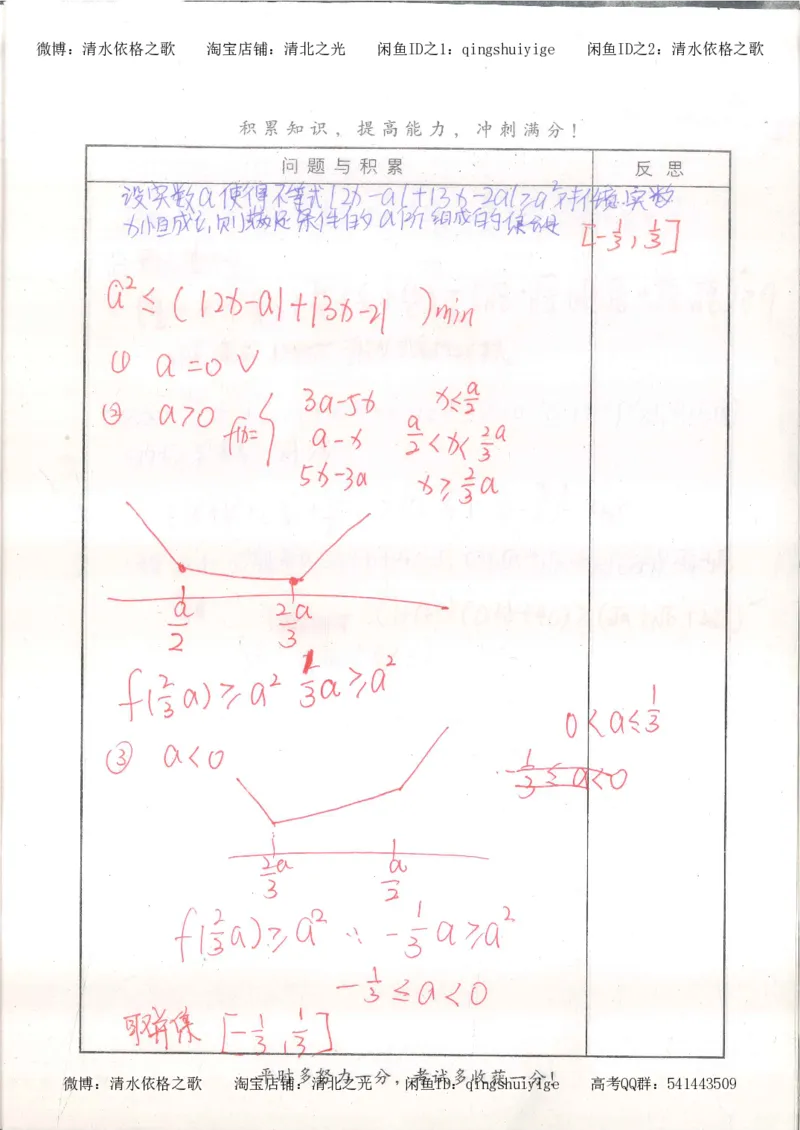 微博：清水依格之歌 淘宝店铺：清北之光 闲鱼ID之1：qingshuiyige 闲鱼ID之2：清水依格之歌
积累知识，提高能力，冲刺满分！
问题与积累 反思
设实数a使得不等式|2x-a|+|3x-2a|≥a²对任意实数
x恒成立，则满足条件的a所组成的集合是 [-1/3, 1/3]
a² ≤ (|2x-a|+|3x-2|)min
① a=0 √
② a>0 f(x)= { 3a-5x x≤a/2
a-x a/2<x<2/3a
5x-3a x≥2/3a
a/2 2a/3
f(2/3a)≥a² 1/3a≥a²
0<a≤1/3
③ a<0
1/3≤a<0
2a/3 a/2
f(2/3a)≥a² ∴ -1/3a≥a²
-1/3≤a<0
取并集 [-1/3, 1/3]
平时多努力一分，考试多收获一分！
微博：清水依格之歌 淘宝店铺：清北之光 闲鱼ID：qingshuiyige 高考QQ群：541443509